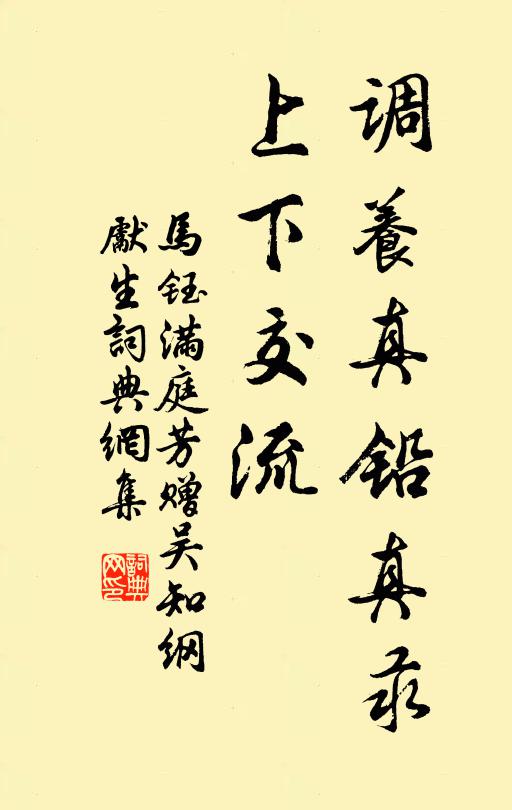 調養真鉛真汞
上下交流
馬鈺滿庭芳贈吴知綱
獻生詞典網集
詞典网印